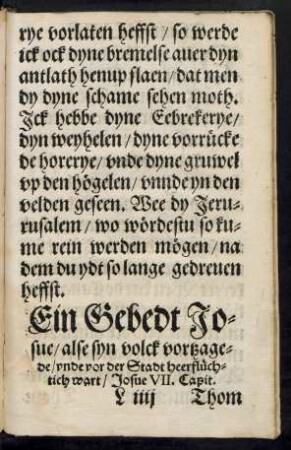 rye vorlaten heffst / so werde
ick ock dyne bremelse auer dyn
antlath henup slaen / dat men
dy dyne schame sehen moth.
Ick hebbe dyne Eebrekerye /
dyn weyhelen / dyne vorrücke
de horerye / vnde dyne gruwel
vp den högelen / vnnde yn den
velden geseen. Wee dy Jeru-
rusalem / wo wördestu so ku-
me rein werden mögen / na
dem du ydt so lange gedreuen
heffst.
Ein Gebedt Jo-
sue / alse syn volck vortzage-
de / vnde vor der Stadt heerflüch-
tich wart / Josue VII. Capit.
L iiij Thom